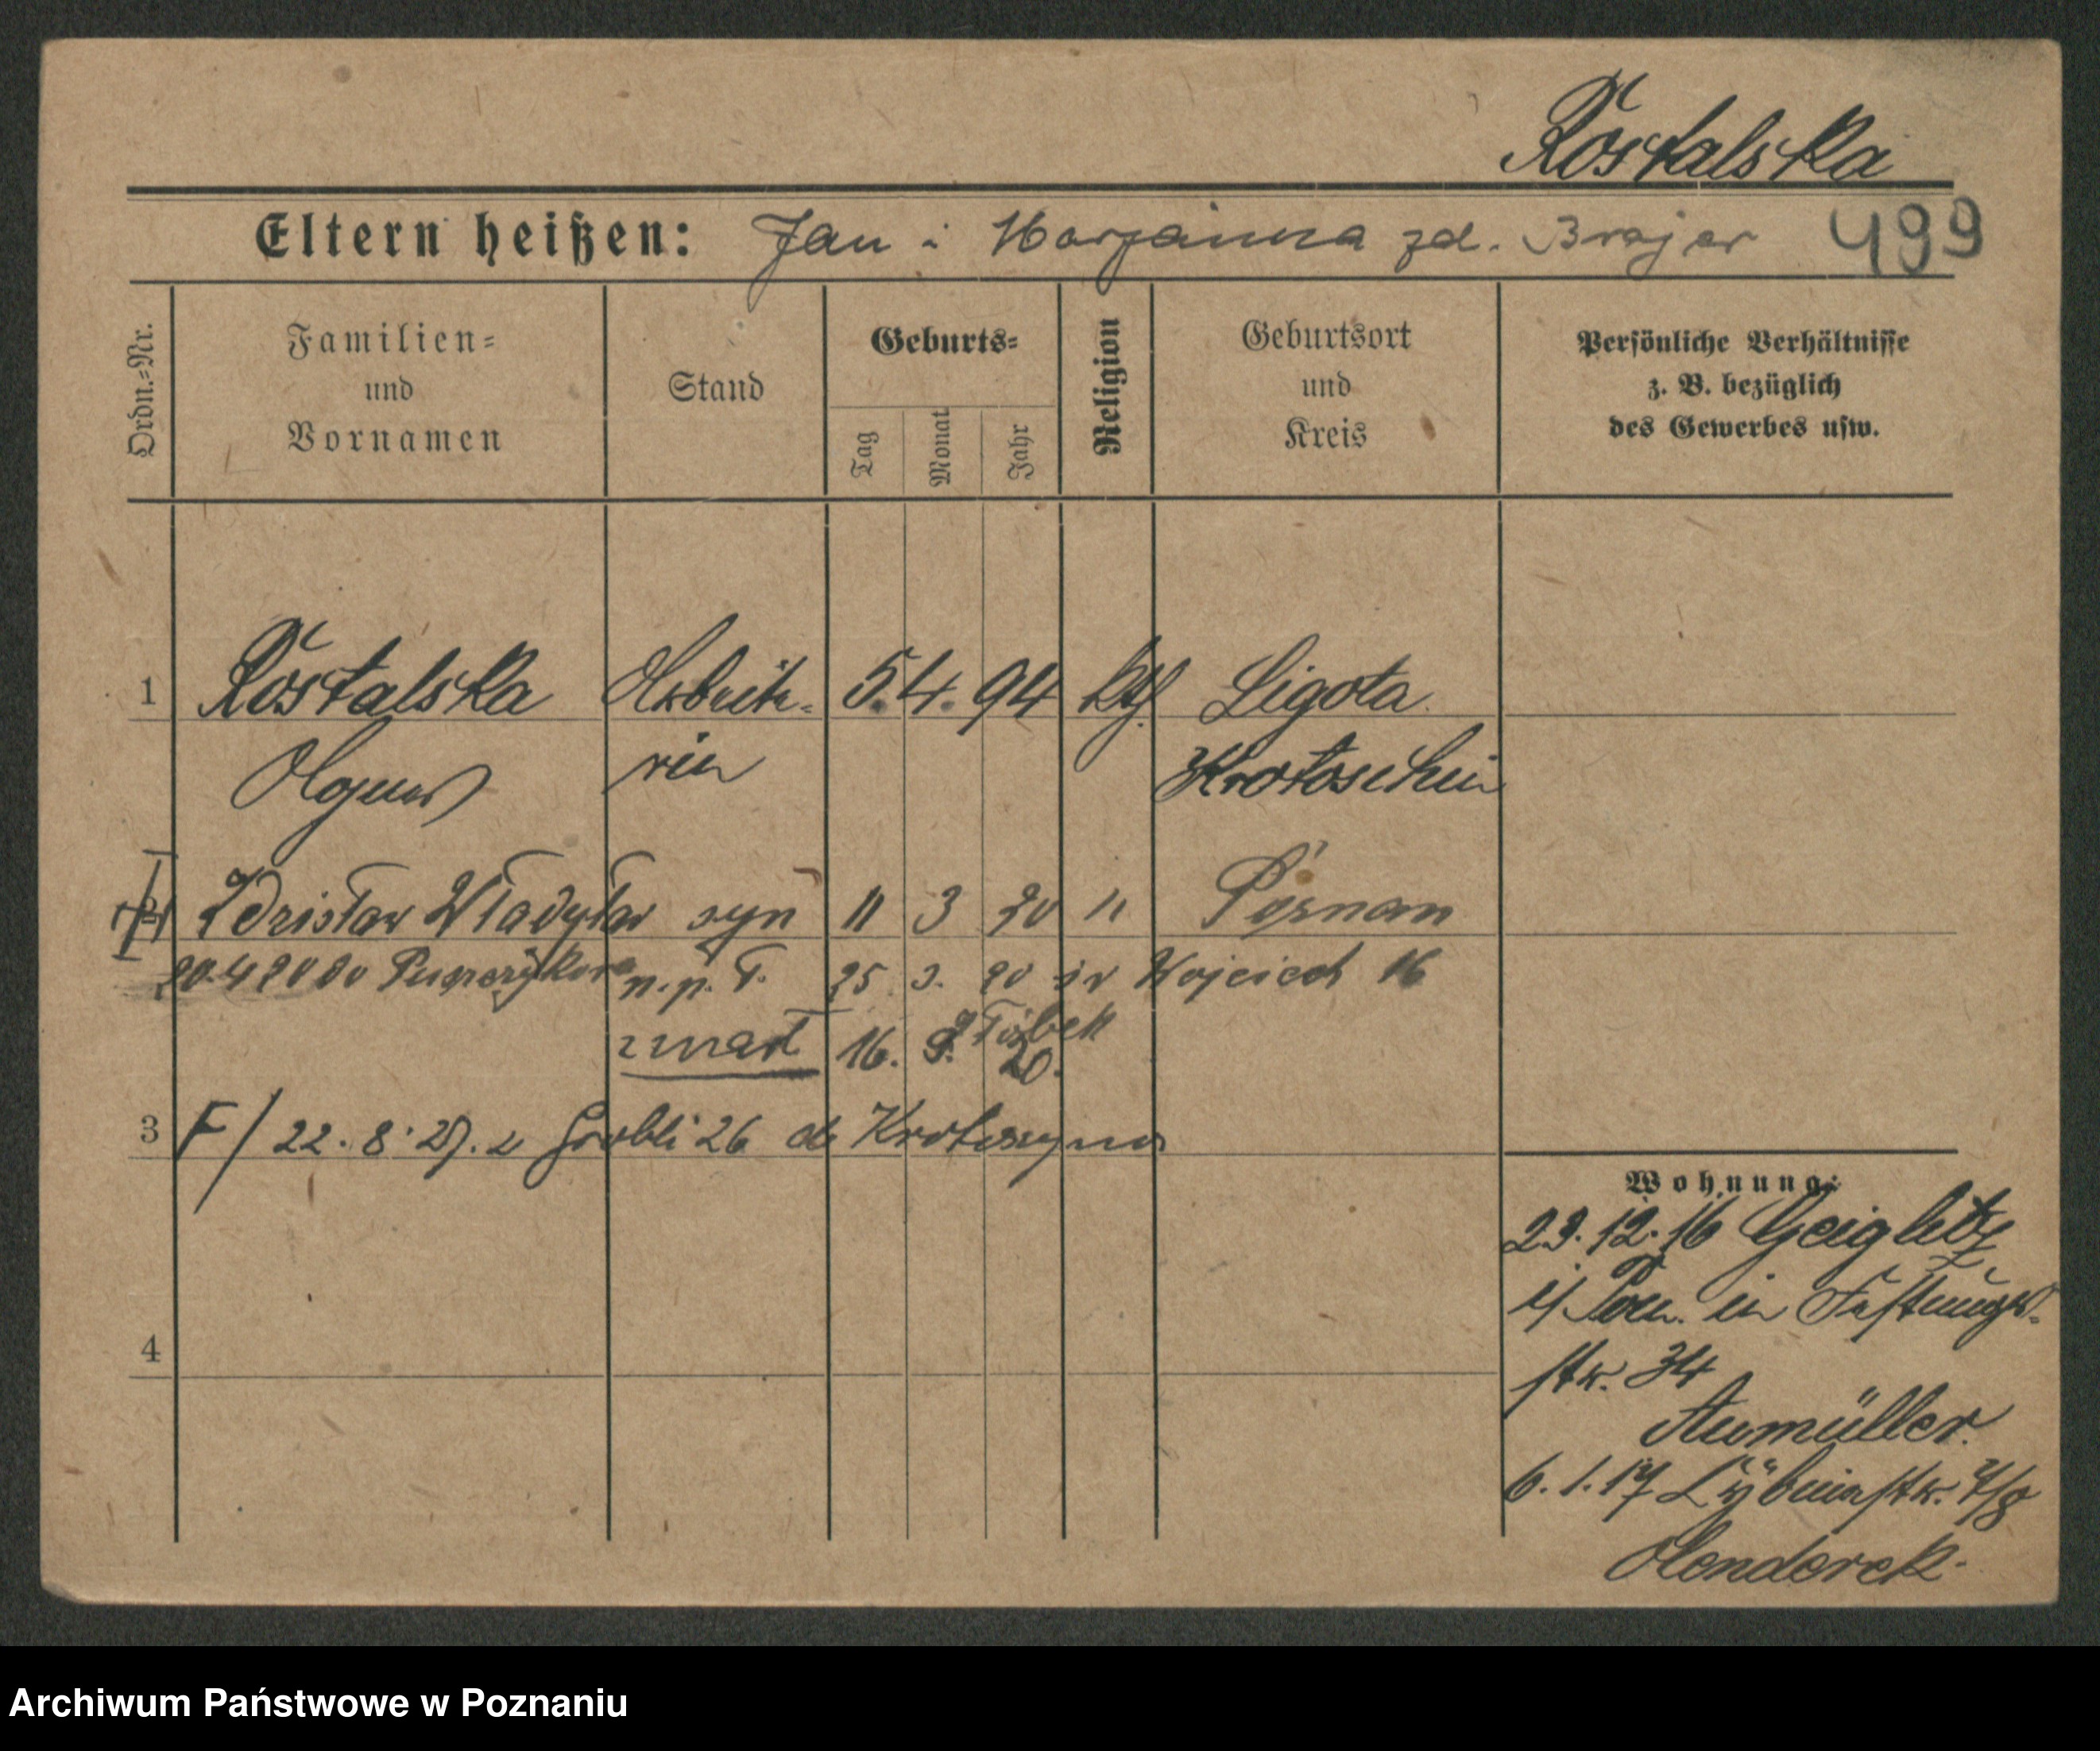 Kostalska
Eltern heißen: Jan i Marjanna zd. Brajer 499
Ordn.=Nr.
Familien=
und
Vornamen
Stand
Geburts=
Tag
Monat
Jahr
Religion
Geburtsort
und
Kreis
Persönliche Verhältnisse
z. B. bezüglich
des Gewerbes usw.
1 Kostalska Arbeite= 5. 4. 94 kth. Ligota
Agnes rin Krotoschin
2 Zdzisław Władysław syn 11 3 20 " Poznań
20.4 20 n.p. T. 25 3. 20 św Wojciech 16
żłóbek
zmarł 16. 9. 20.
3 F/ 22. 8. 27. z Grobli 26 do Krotoszyna
4
Wohnung:
23.12.16 Geiglitz
i/ Pom. in Festungs=
str. 34
Aumüller.
6. 1. 17 Lybeniastr. 7/8
Henderek.
Archiwum Państwowe w Poznaniu